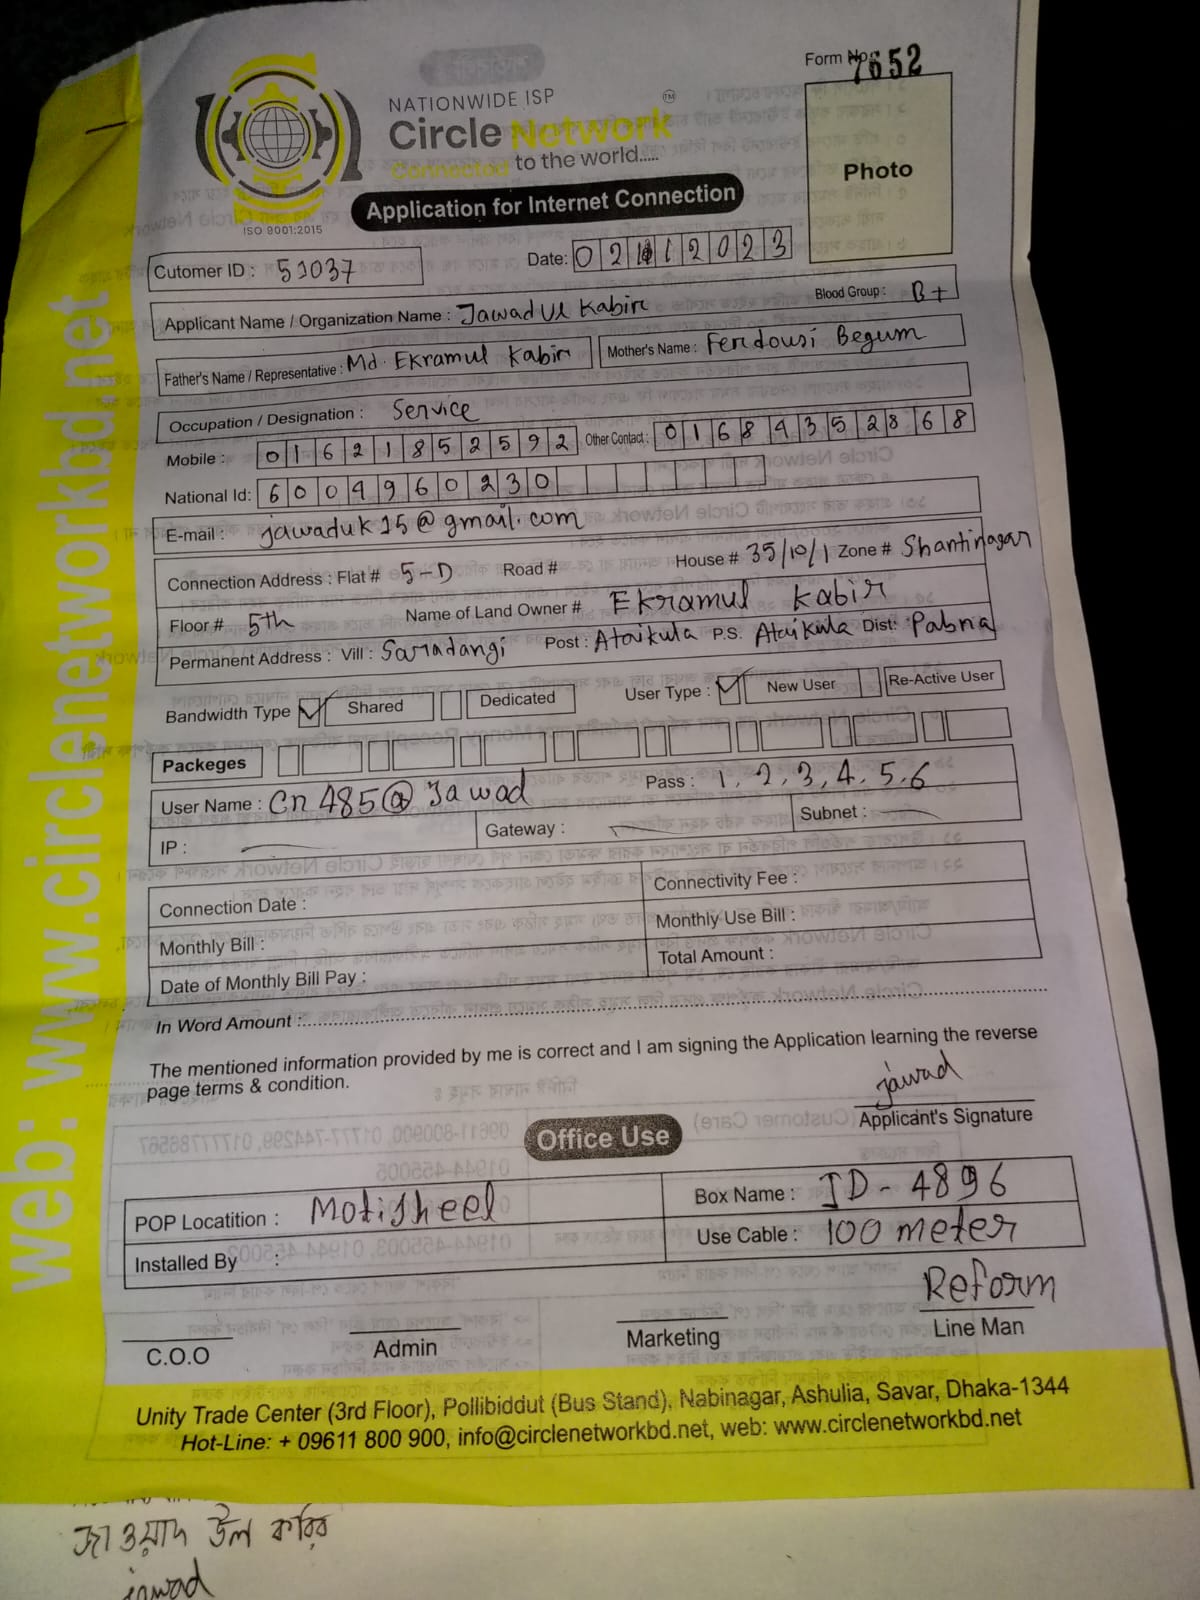 Form No. 7652
NATIONWIDE ISP
TM
Circle Network
Connected to the world.....
ISO 9001:2015
Application for Internet Connection
Photo
Cutomer ID : 51037
Date: 02 12023
Applicant Name / Organization Name : Jawad Ul Kabir
Blood Group : B+
Father's Name / Representative : Md. Ekramul Kabir
Mother's Name : Ferdousi Begum
Occupation / Designation : Service
Mobile : 01621852592 Other Contact : 01684352868
National Id: 6004960230
E-mail : jawaduk15@gmail.com
Connection Address : Flat # 5-D Road # House # 35/10/1 Zone # Shantinagar
Floor # 5th Name of Land Owner # Ekramul Kabir
Permanent Address : Vill : Saradangi Post : Ataikula P.S. Ataikula Dist: Pabna
Bandwidth Type Shared Dedicated User Type : New User Re-Active User
Packeges
User Name : Cn485@Jawad Pass : 1,2,3,4,5,6
IP : Gateway : Subnet :
Connection Date : Connectivity Fee :
Monthly Bill : Monthly Use Bill :
Date of Monthly Bill Pay : Total Amount :
In Word Amount :
The mentioned information provided by me is correct and I am signing the Application learning the reverse
page terms & condition.
jawad
Applicant's Signature
Office Use
POP Locatition : Motijheel Box Name : JD-4896
Installed By : Use Cable : 100 meter
Reform
C.O.O Admin Marketing Line Man
Unity Trade Center (3rd Floor), Pollibiddut (Bus Stand), Nabinagar, Ashulia, Savar, Dhaka-1344
Hot-Line: + 09611 800 900, info@circlenetworkbd.net, web: www.circlenetworkbd.net
web: www.circlenetworkbd.net
জাওয়াদ উল কবির
jawad